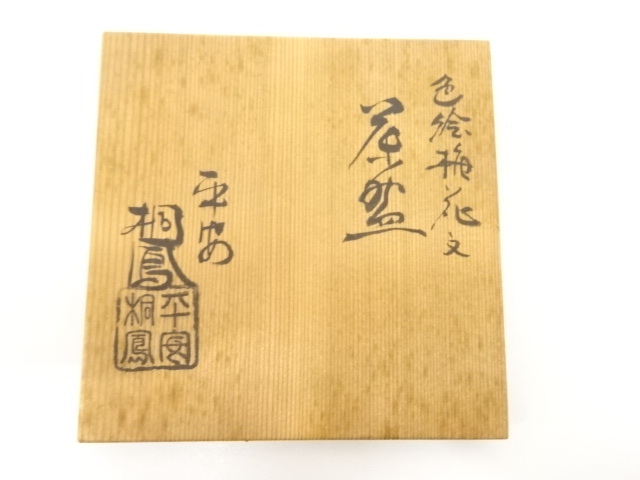 色絵梅花文
茶盌
平安
桐鳳
平安
桐鳳